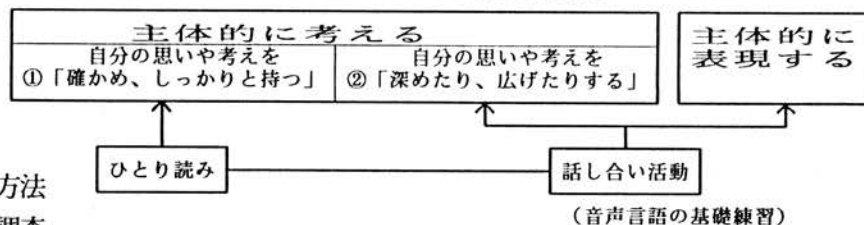 主体的に考える
自分の思いや考えを
①「確かめ、しっかりと持つ」
自分の思いや考えを
②「深めたり、広げたりする」
主体的に
表現する
ひとり読み
話し合い活動
(音声言語の基礎練習)
方法